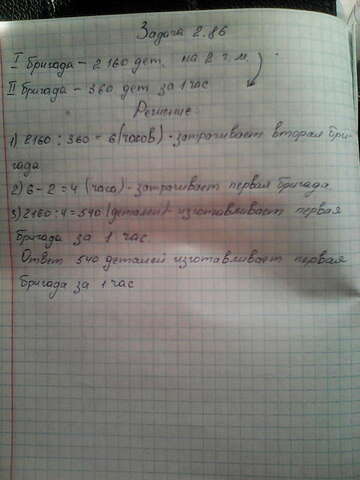 Задача 2.86
I бригада - 2160 дет. на 2 ч. м.
II бригада - 360 дет за 1 час
Решение:
1) 2160 : 360 = 6 (часов) - затрачивает вторая бри-
гада
2) 6 - 2 = 4 (часа) - затрачивает первая бригада
3) 2160 : 4 = 540 (деталей) - изготавливает первая
бригада за 1 час
Ответ 540 деталей изготавливает первая
бригада за 1 час